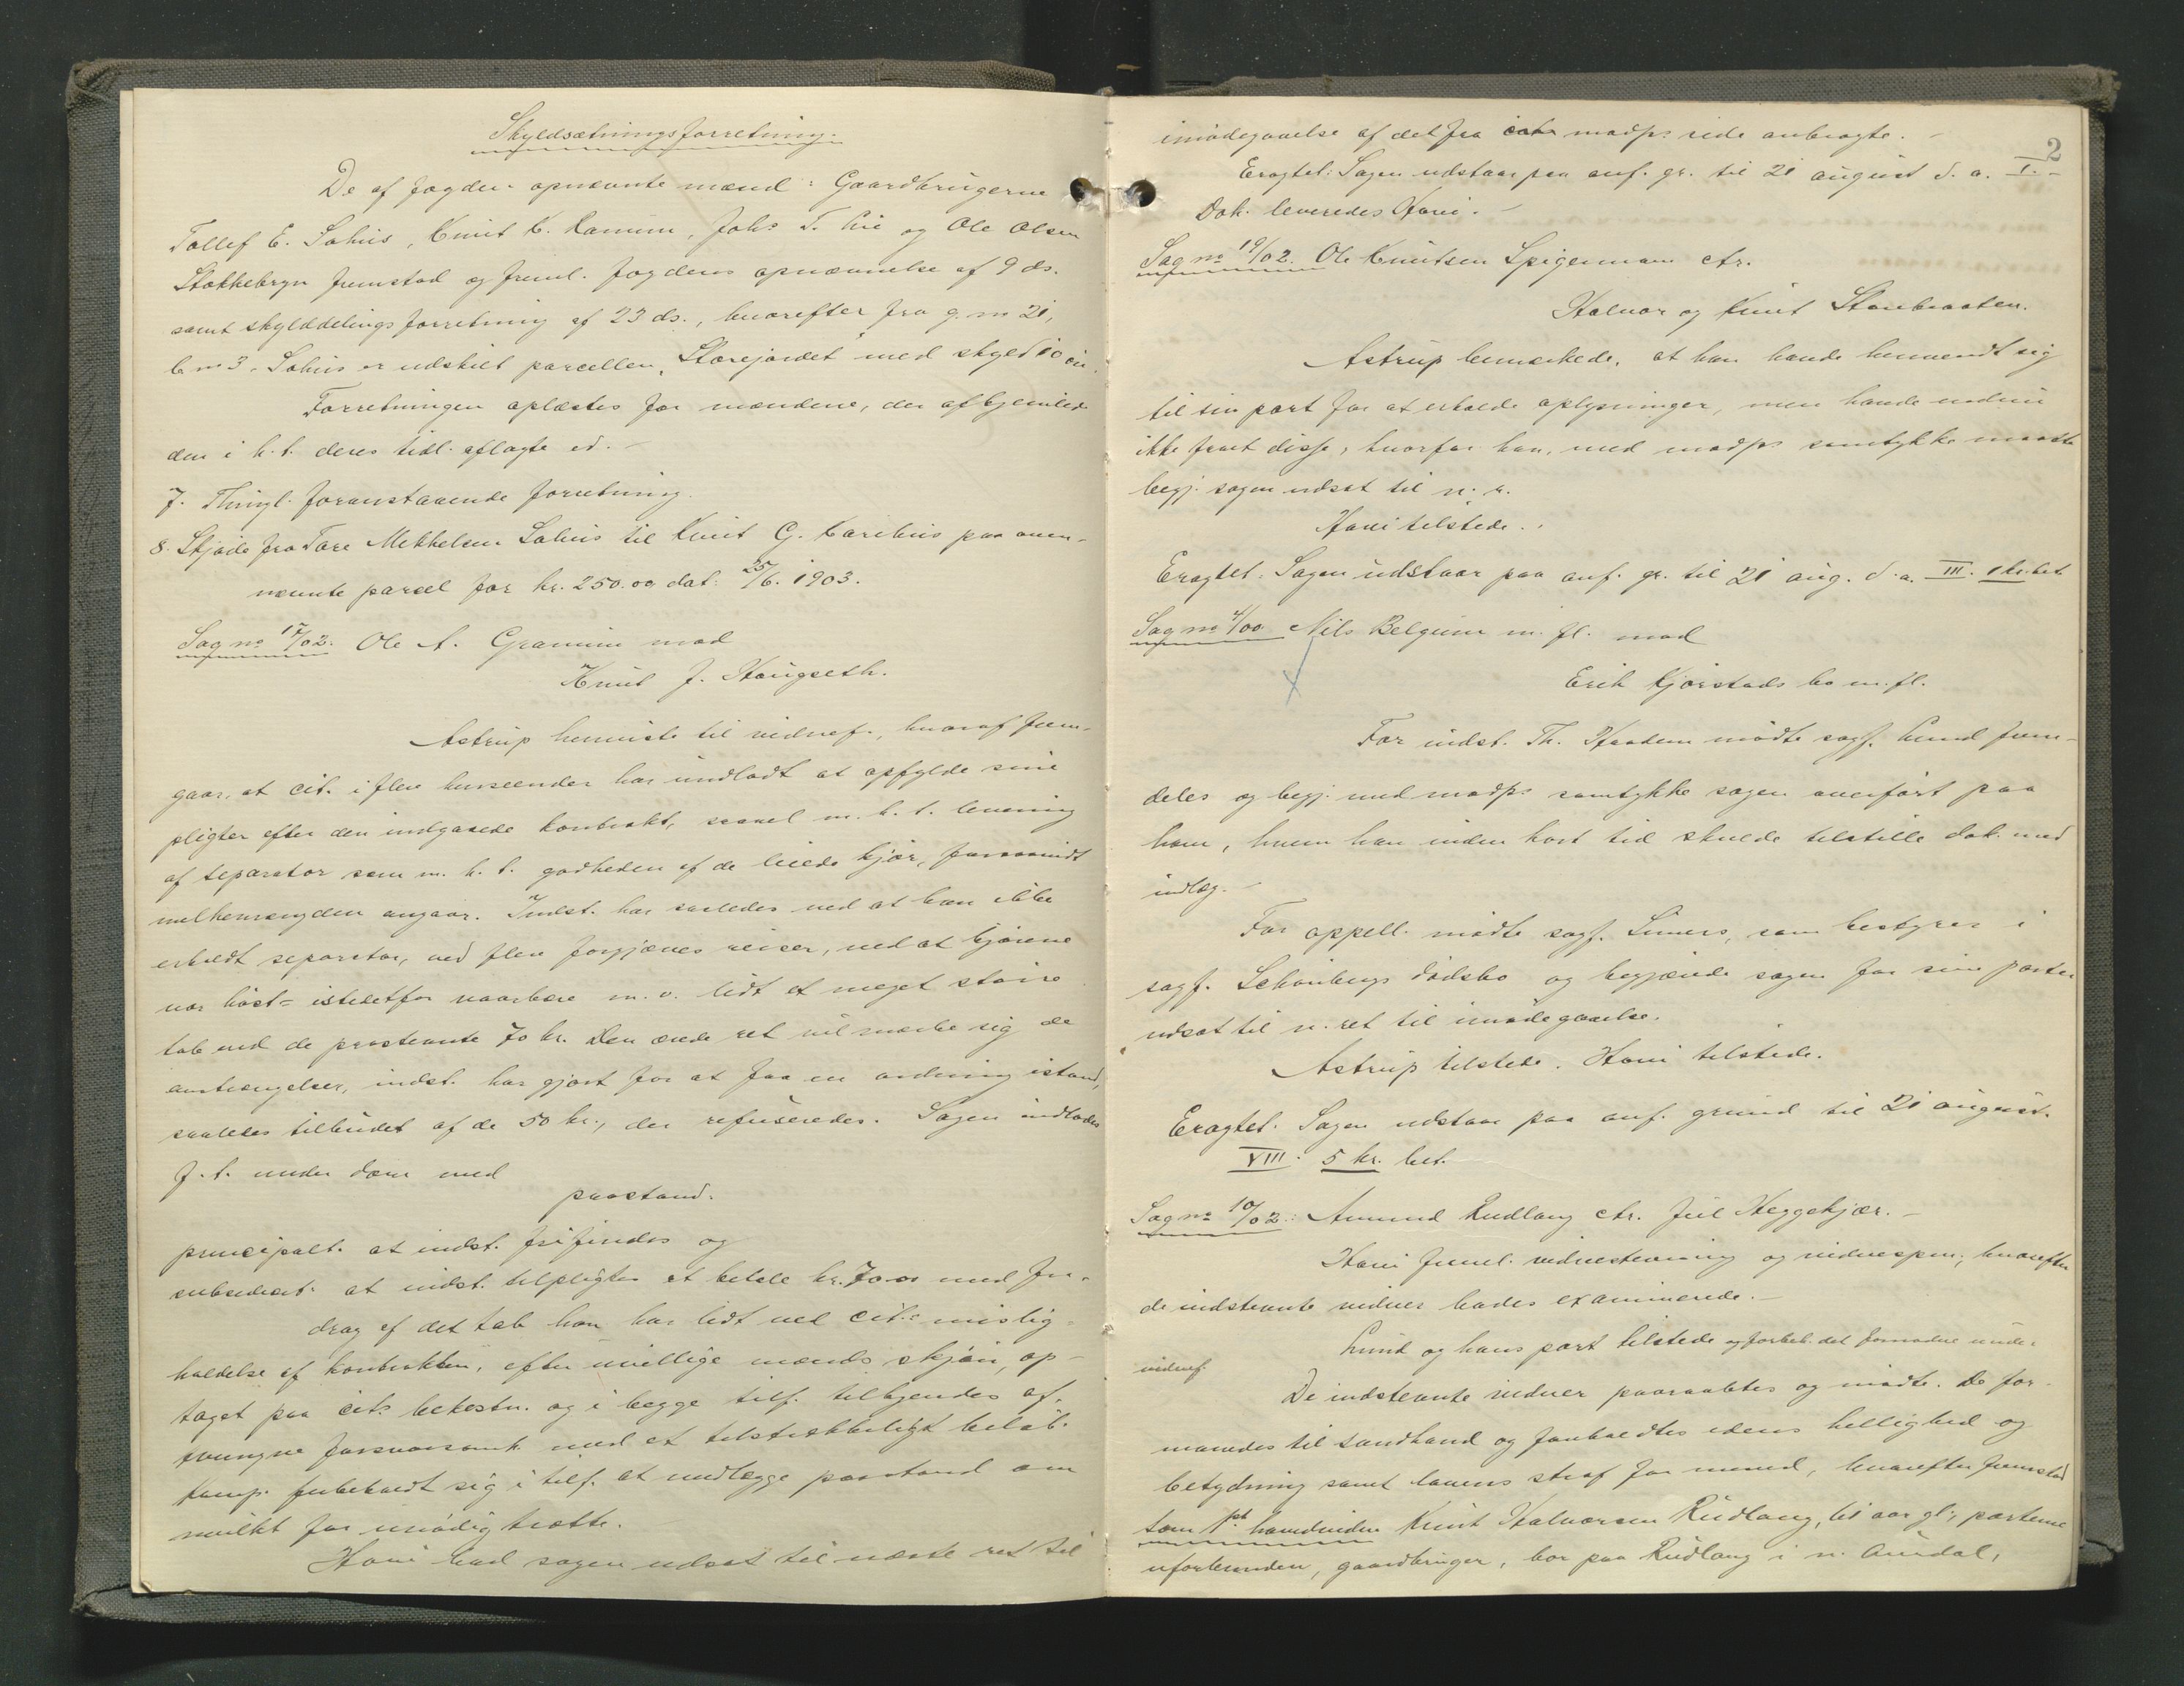 Skyldsætningsforretning.
De af fogden opnævnte mænd: Gaardbrugerne
Tollef E. Sahus, Knut K. Ramum, Johs T. Lie og Ole Olsen
Stokkebryn fremstod og freml. fogdens opnævnelse af 9 ds.
samt skylddelingsforretning af 23 ds., hvorefter fra g. no 21,
b no 3. Sahus er udskilt parcellen "Storejordet" med skyld 10 øre.
Forretningen oplæstes for mændene, der afhjemlede
den i h. t. deres tidl. aflagte ed. —
7. Thingl. foranstaaende forretning.
8. Skjøde fra Tore Mikkelsen Sahus til Knut G. Karihus paa oven-
nævnte parcel for kr. 250.00 dat. 25/6. 1903.
Sag no 17/02. Ole A. Gramim mod
Knut J. Haugseth.
Astrup henviste til vidnef., hvoraf frem-
gaar, at cit. i flere henseender har undladt at opfylde sine
pligter efter den indgaaede kontrakt, saavel m. h. t. levering
af separator som m. h. t. godheden af de leiede kjør, forsaavidt
melkemængden angaar. Indst. har saaledes ved at han ikke
erholdt separator, ved flere forgjæves reiser, ved at kjørene
var høst- istedetfor vaarbære m. v. lidt et meget større
tab end de paastevnte 70 kr. Den ærede ret vil mærke sig de
anstrængelser, indst. har gjort for at faa en ordning istand,
saaledes tilbudet af de 50 kr., der refuseredes. Sagen indlodes
f. t. under dom med
paastand.
principalt. at indst. frifindes og
subsidiært. at indst. tilpligtes at betale kr. 70.00 med fra-
drag af det tab han har lidt ved cit.s mislig-
holdelse af kontrakten, efter uvillige mænds skjøn, op-
taget paa cit.s bekostn. og i begge tilf. tilkjendes af-
tvungne forsvarsomk. med et tilstrækkeligt beløb.
Komp. forbeholdt sig i tilf. at nedlægge paastand om
mulkt for unødig trætte.
Hovi bad sagen udsat til næste ret til
2
imødegaaelse af det fra modps side anbragte. —
Eragtet: Sagen udstaar paa anf. gr. til 21 august d. a. I. —
Dok. leveredes Hovi. —
Sag no 19/02. Ole Knutsen Spigermoen ctr.
Halvor og Knut Storbraaten.
Astrup bemærkede, at han havde henvendt sig
til sin part for at erholde oplysninger, men havde endnu
ikke faaet disse, hvorfor han, med modps samtykke maatte
begj. sagen udsat til n. r.
Hovi tilstede.
Eragtet: Sagen udstaar paa anf. gr. til 21 aug. d. a. III. 1 kr. bet.
Sag no 4/00 Nils Belgum m. fl. mod
Erik Kjørstads bo m. fl.
For indst. Th. Haatem mødte sagf. Lund frem-
deles og begj. med modps samtykke sagen overført paa
ham, hvem han inden kort tid skulde tilstille dok. med
indlæg. —
For appell. mødte sagf. Simers, som bestyrer i
sagf. Schønbergs dødsbo og begjærede sagen for sine parter
udsat til n. ret til imødegaaelse.
Astrup tilstede. Hovi tilstede.
Eragtet: Sagen udstaar paa anf. grund til 21 august.
VIII. 5 kr. bet.
Sag no 10/02: Amund Rudlang ctr. Juul Heggekjær. —
Hovi freml. vidnestevning og vidnespm., hvorefter
de indstevnte vidner bades examinerede. —
Lund og hans part tilstede og forbeh. det fornødne under
vidnef.
De indstevnte vidner paaraabtes og mødte. De for-
manedes til sandhand og foreholdtes edens hellighed og
betydning samt lovens straf for mened, hvorefter fremstod
som 1ste hovedvidne Knut Halvorsen Rudlang, 61 aar gl., parterne
uforbunden, gaardbruger, bor paa Rudlang i n. Aurdal,